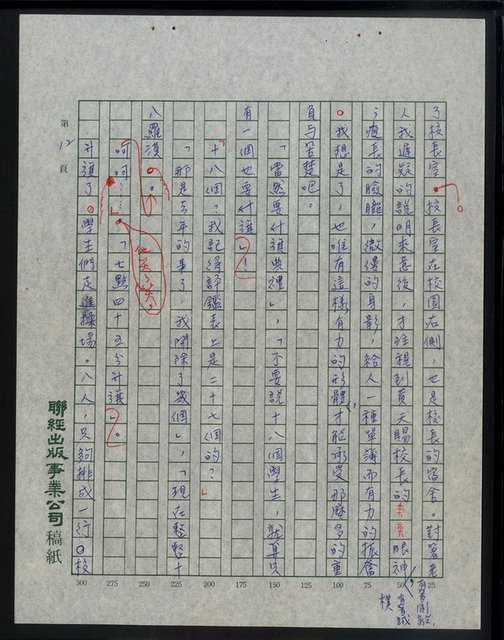 了校長室。校長室在校園右側,也是校長的宿舍。對窗老
人我遲疑的說明來意後,才注視到黃天賜校長的炎炎眼神
,瘦長的臉龐,微僂的身影,給人一種單薄而有力的振奮
。我想是了,也唯有這樣有力的形體,才能承受那麼多的重
負与苦楚吧。
「當然要升旗典禮」,「不要說十八個學生,就算只
有一個也要升旗」!
「十八個?我記得評鑑表上是二十七個的?」
「那是去年的事了,我開除了幾個」,「現在整整十
八羅漢。」
他笑了笑,
呵呵……」「七點四十五分升旗」。
升旗了。學生們走進操場。八人,只夠排成一行。校
第12頁
聯經出版事業公司 稿紙
300 275 250 225 200 175 150 125 100 75 50 25